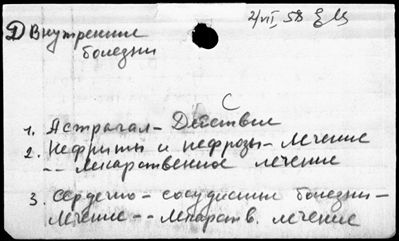 Д Внутренние
болезни
2/VII, 58
С
1. Астрагал – Действие
2. Нефриты и нефрозы – лечение
-- лекарственное лечение
3. Сердечно – сосудистые болезни –
лечение -- лекарств. лечение